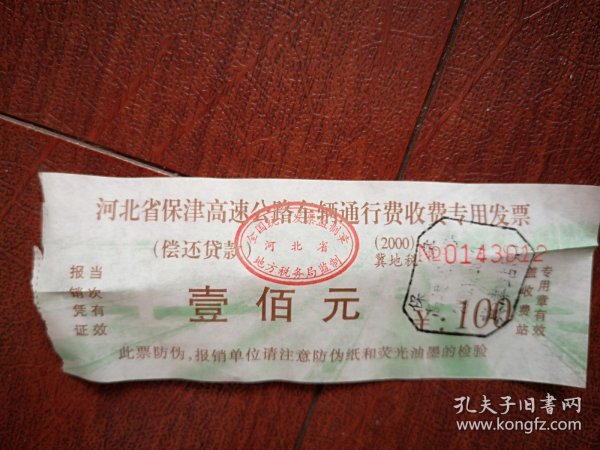 河北省保津高速公路车辆通行费收费专用发票
(偿还贷款)
全国统一发票监制章
河北省
地方税务局监制
(2000)
冀地税
№0143912
当次有效
报销凭证
壹佰元
¥:100
专用章有效
盖收费站
此票防伪,报销单位请注意防伪纸和荧光油墨的检验
孔夫子旧书网
www.kongfz.com